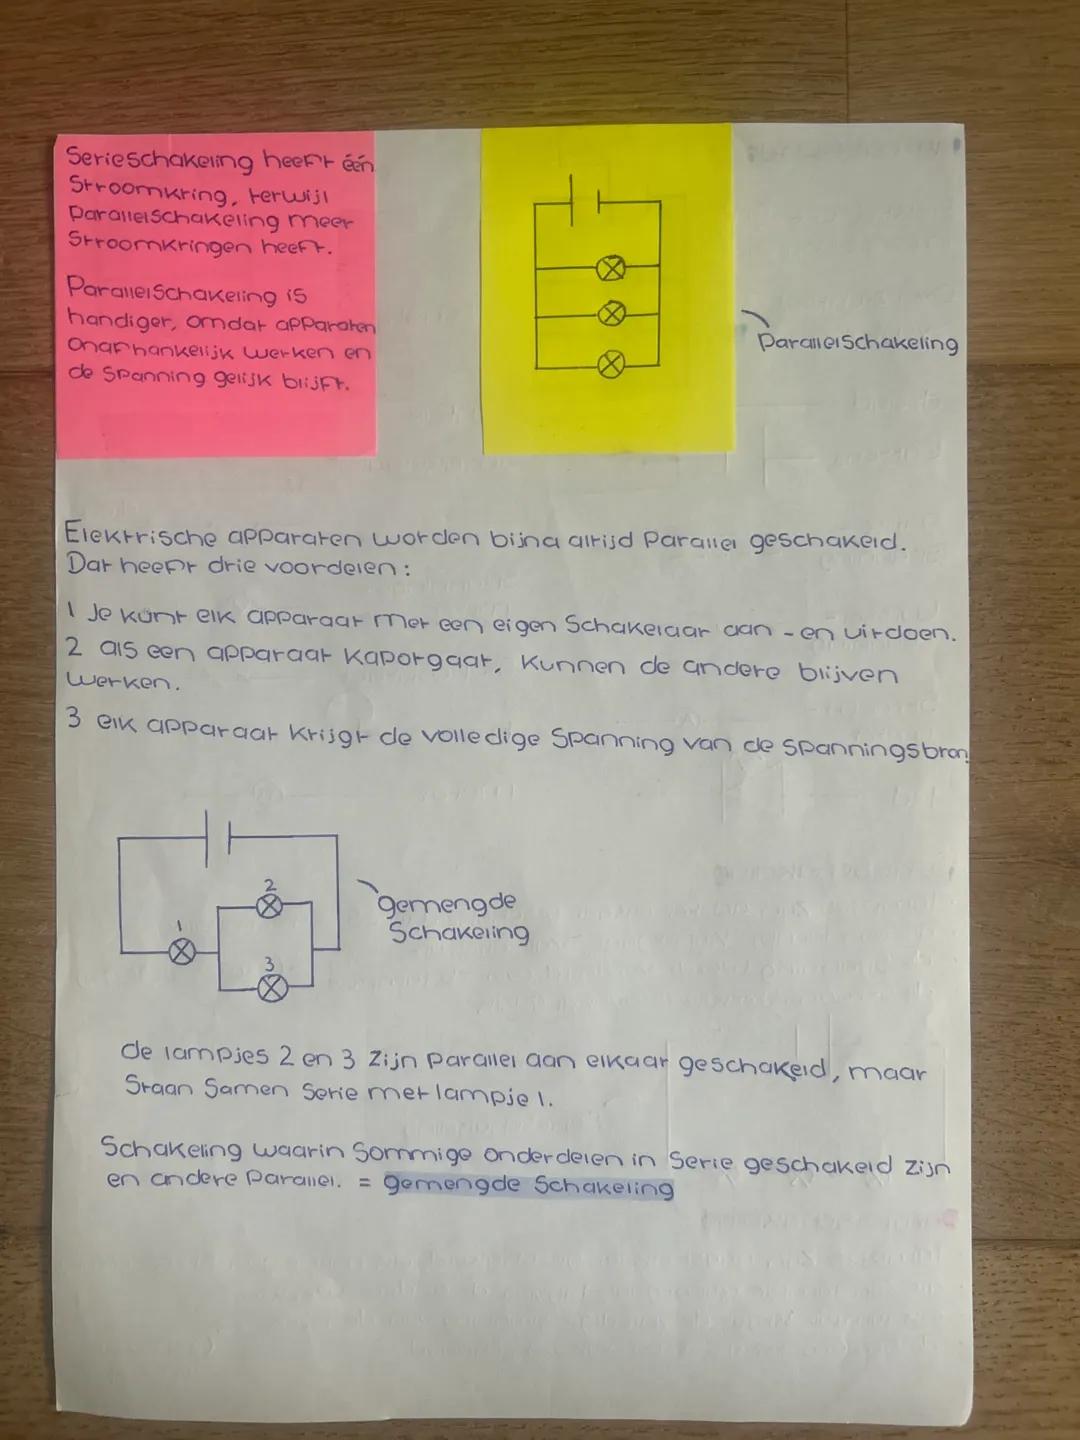 Serieschakeling heeft één
Stroomkring, terwijl
Parallelschakeling meer
Stroomkringen heeft.
Parallelschakeling is
handiger, omdat apparaten
onafhankelijk werken en
de spanning gelijk blijft.
Parallelschakeling
Elektrische apparaten worden bijna altijd Parallel geschakeld.
Dat heeft drie voordelen:
1 Je kunt elk apparaat met een eigen Schakelaar aan - en uitdoen.
2 als een apparaat kapotgaat, kunnen de andere blijven
werken.
3 elk apparaat krijgt de volledige Spanning van de spanningsbron.
2
1
3
gemengde
Schakeling
de lampjes 2 en 3 Zijn Parallel aan elkaar geschakeld, maar
Staan Samen Serie met lampje 1.
Schakeling waarin Sommige onderdelen in Serie geschakeld zijn
en andere Parallel. = gemengde Schakeling